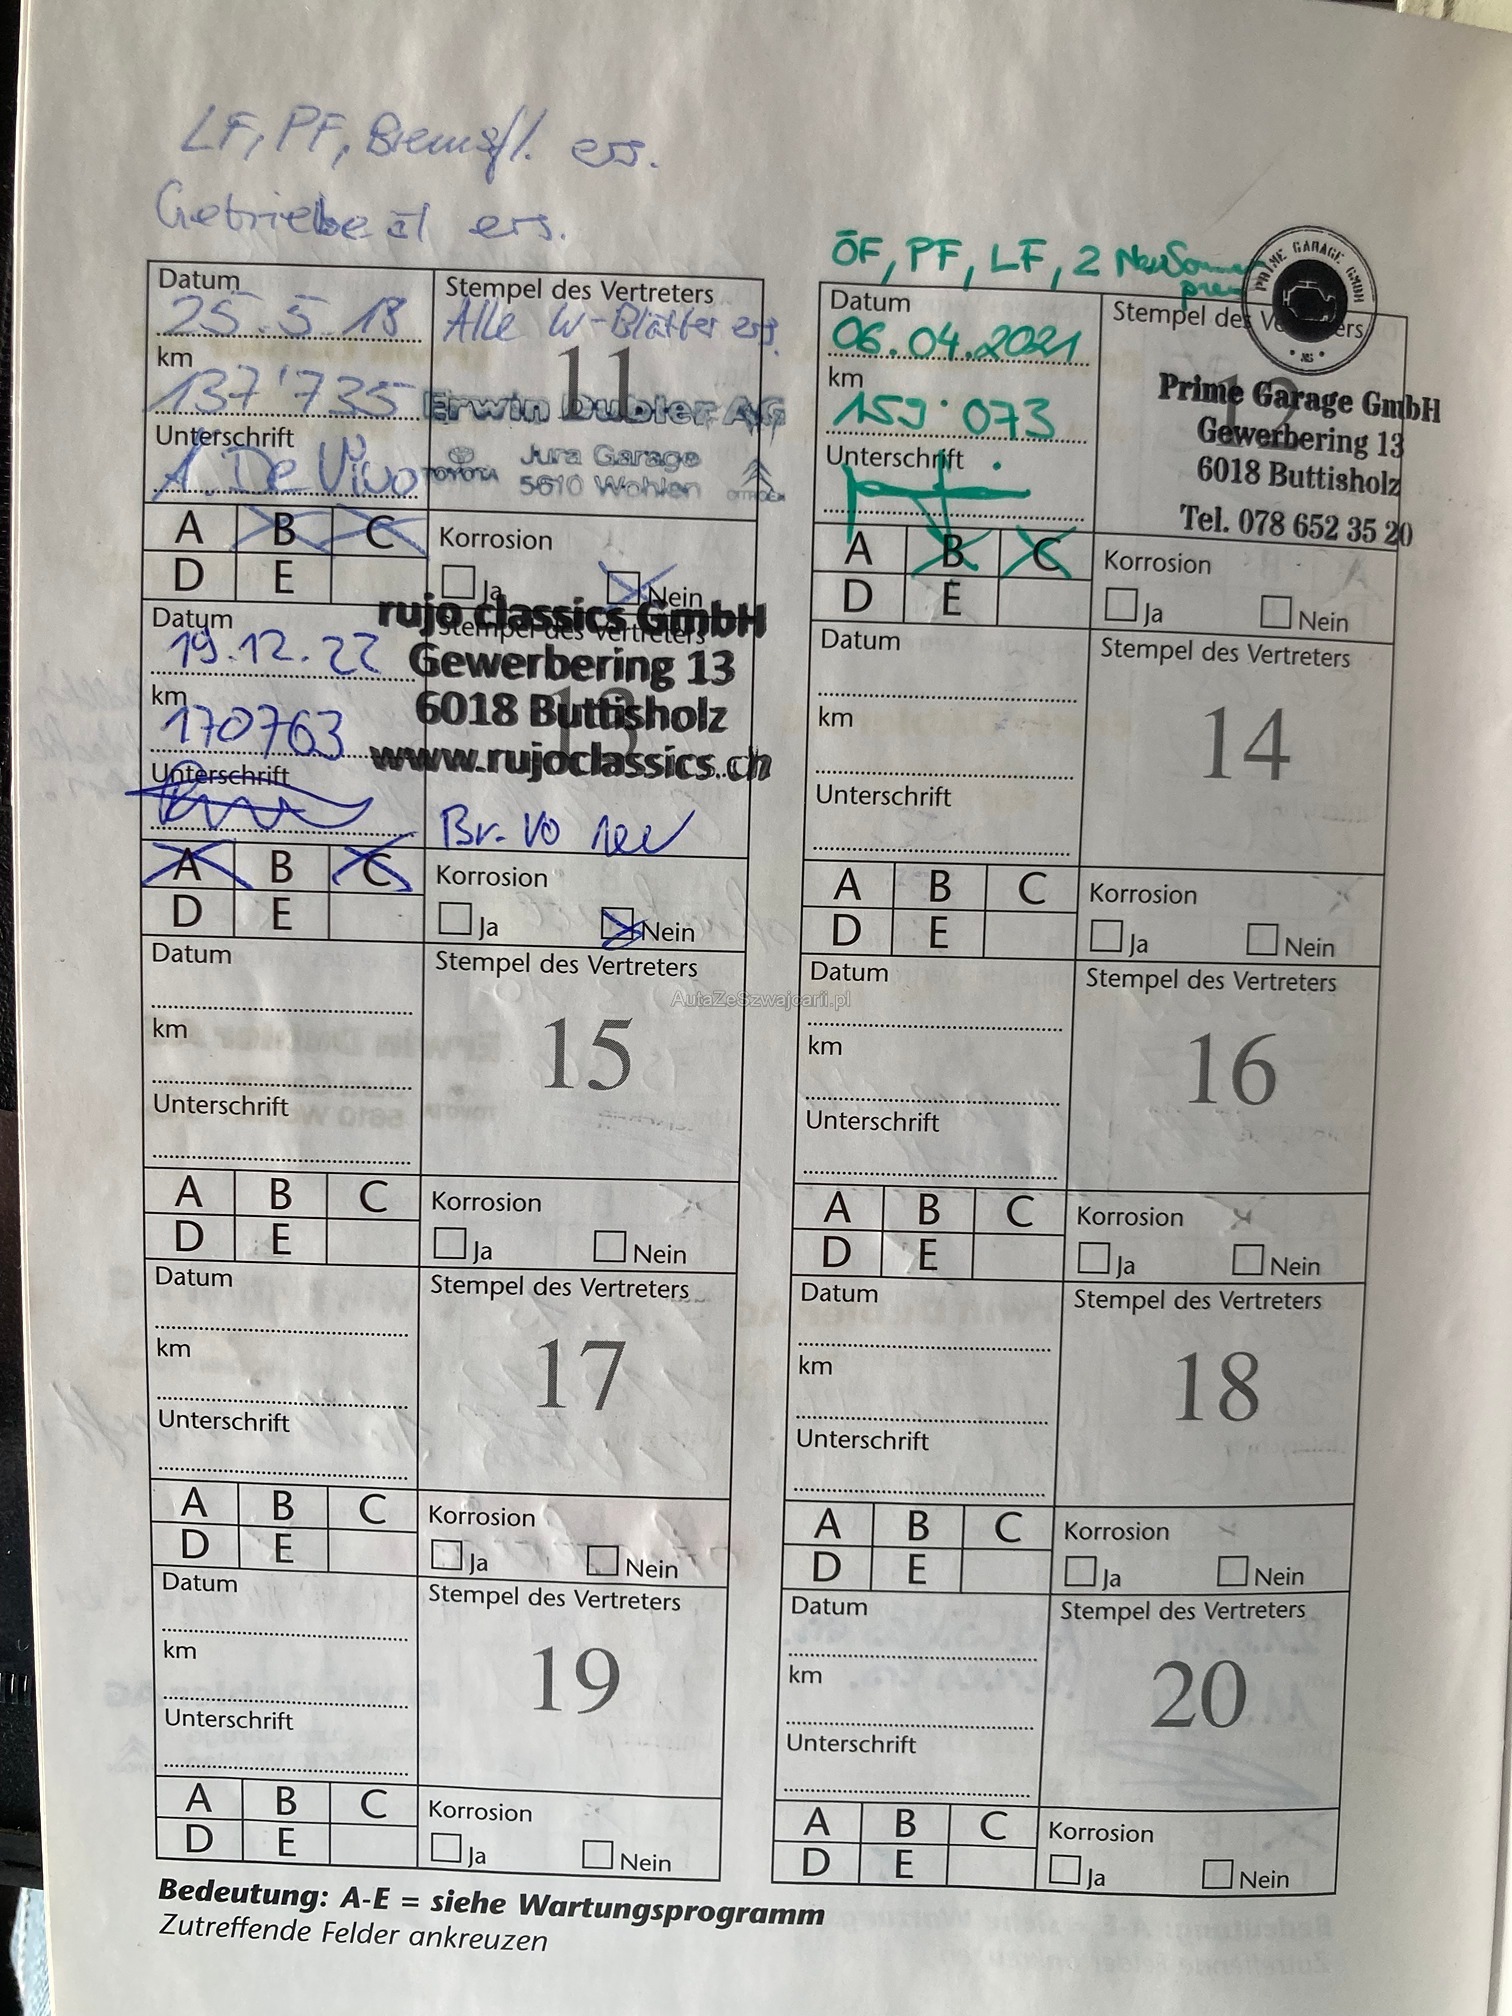 LF, PF, Bremsfl. ers.
Getriebeöl ers.
Datum
25.5.18
Stempel des Vertreters
Alle W-Blätter ers.
11
km
137'735
Erwin Dubler AG
Jura Garage
TOYOTA
5610 Wohlen
CITROËN
Unterschrift
A. De Vivo
A B C
D E
Korrosion
Ja Nein
ÖF, PF, LF, 2 Neu Sommer
PRIME GARAGE GMBH
Datum
06.04.2021
Stempel des Vertreters
km
159'073
Prime Garage GmbH
Gewerbering 13
6018 Buttisholz
Tel. 078 652 35 20
Unterschrift
A B C
D E
Korrosion
Ja Nein
Datum
19.12.22
Stempel des Vertreters
13
rujo classics GmbH
Gewerbering 13
6018 Buttisholz
www.rujoclassics.ch
km
170763
Unterschrift
Br. VO neu
A B C
D E
Korrosion
Ja Nein
Datum
Stempel des Vertreters
14
km
Unterschrift
A B C
D E
Korrosion
Ja Nein
Datum
Stempel des Vertreters
AutaZeSzwajcarii.pl
15
km
Unterschrift
A B C
D E
Korrosion
Ja Nein
Datum
Stempel des Vertreters
16
km
Unterschrift
A B C
D E
Korrosion
Ja Nein
Datum
Stempel des Vertreters
17
km
Unterschrift
A B C
D E
Korrosion
Ja Nein
Datum
Stempel des Vertreters
18
km
Unterschrift
A B C
D E
Korrosion
Ja Nein
Datum
Stempel des Vertreters
19
km
Unterschrift
A B C
D E
Korrosion
Ja Nein
Datum
Stempel des Vertreters
20
km
Unterschrift
A B C
D E
Korrosion
Ja Nein
Bedeutung: A-E = siehe Wartungsprogramm
Zutreffende Felder ankreuzen